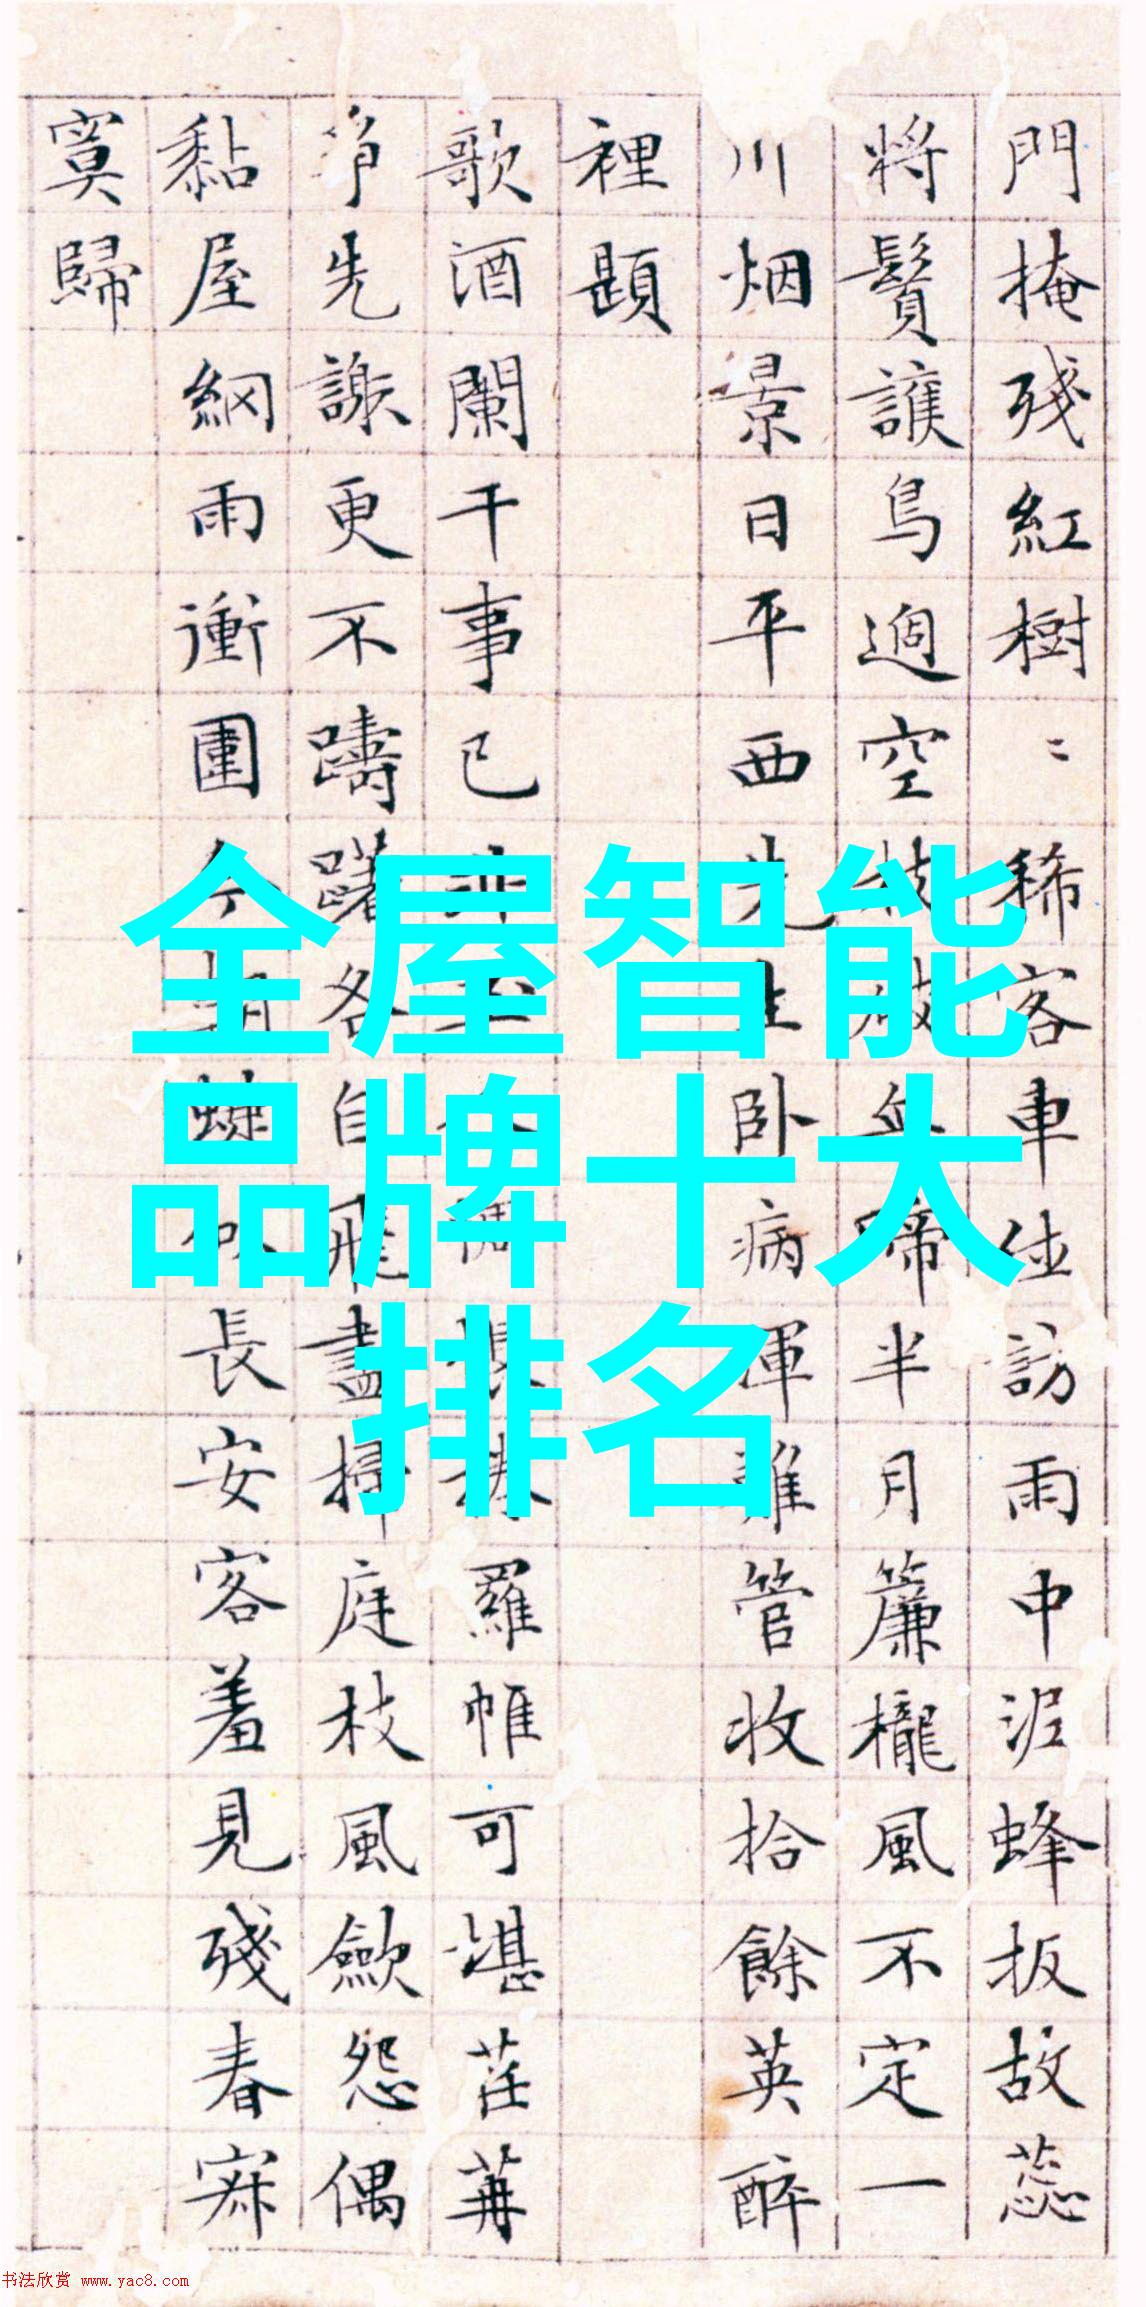 門掩殘紅樹〻稀客車位訪雨中泥蜂扳故蕊
將鬢護鳥過空枝啼半月簾櫳風不定一
川烟景日平西先生卧病渾難管收拾餘英醉
裡題
歌酒闌干事已羅帷可堪茌苒
先謝更不躊躇各自飛盡掃庭枝風歛怨偶
黏屋網雨衝圍長安客羞見殘春寂
寞歸
全屋智能
品牌十大
排名
书法欣赏 www.yac8.com